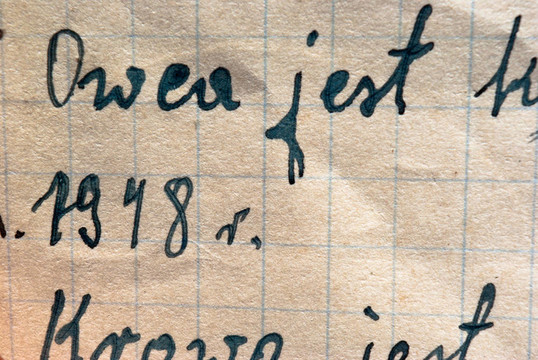 Owca jest
1948 r.
Krowa jest